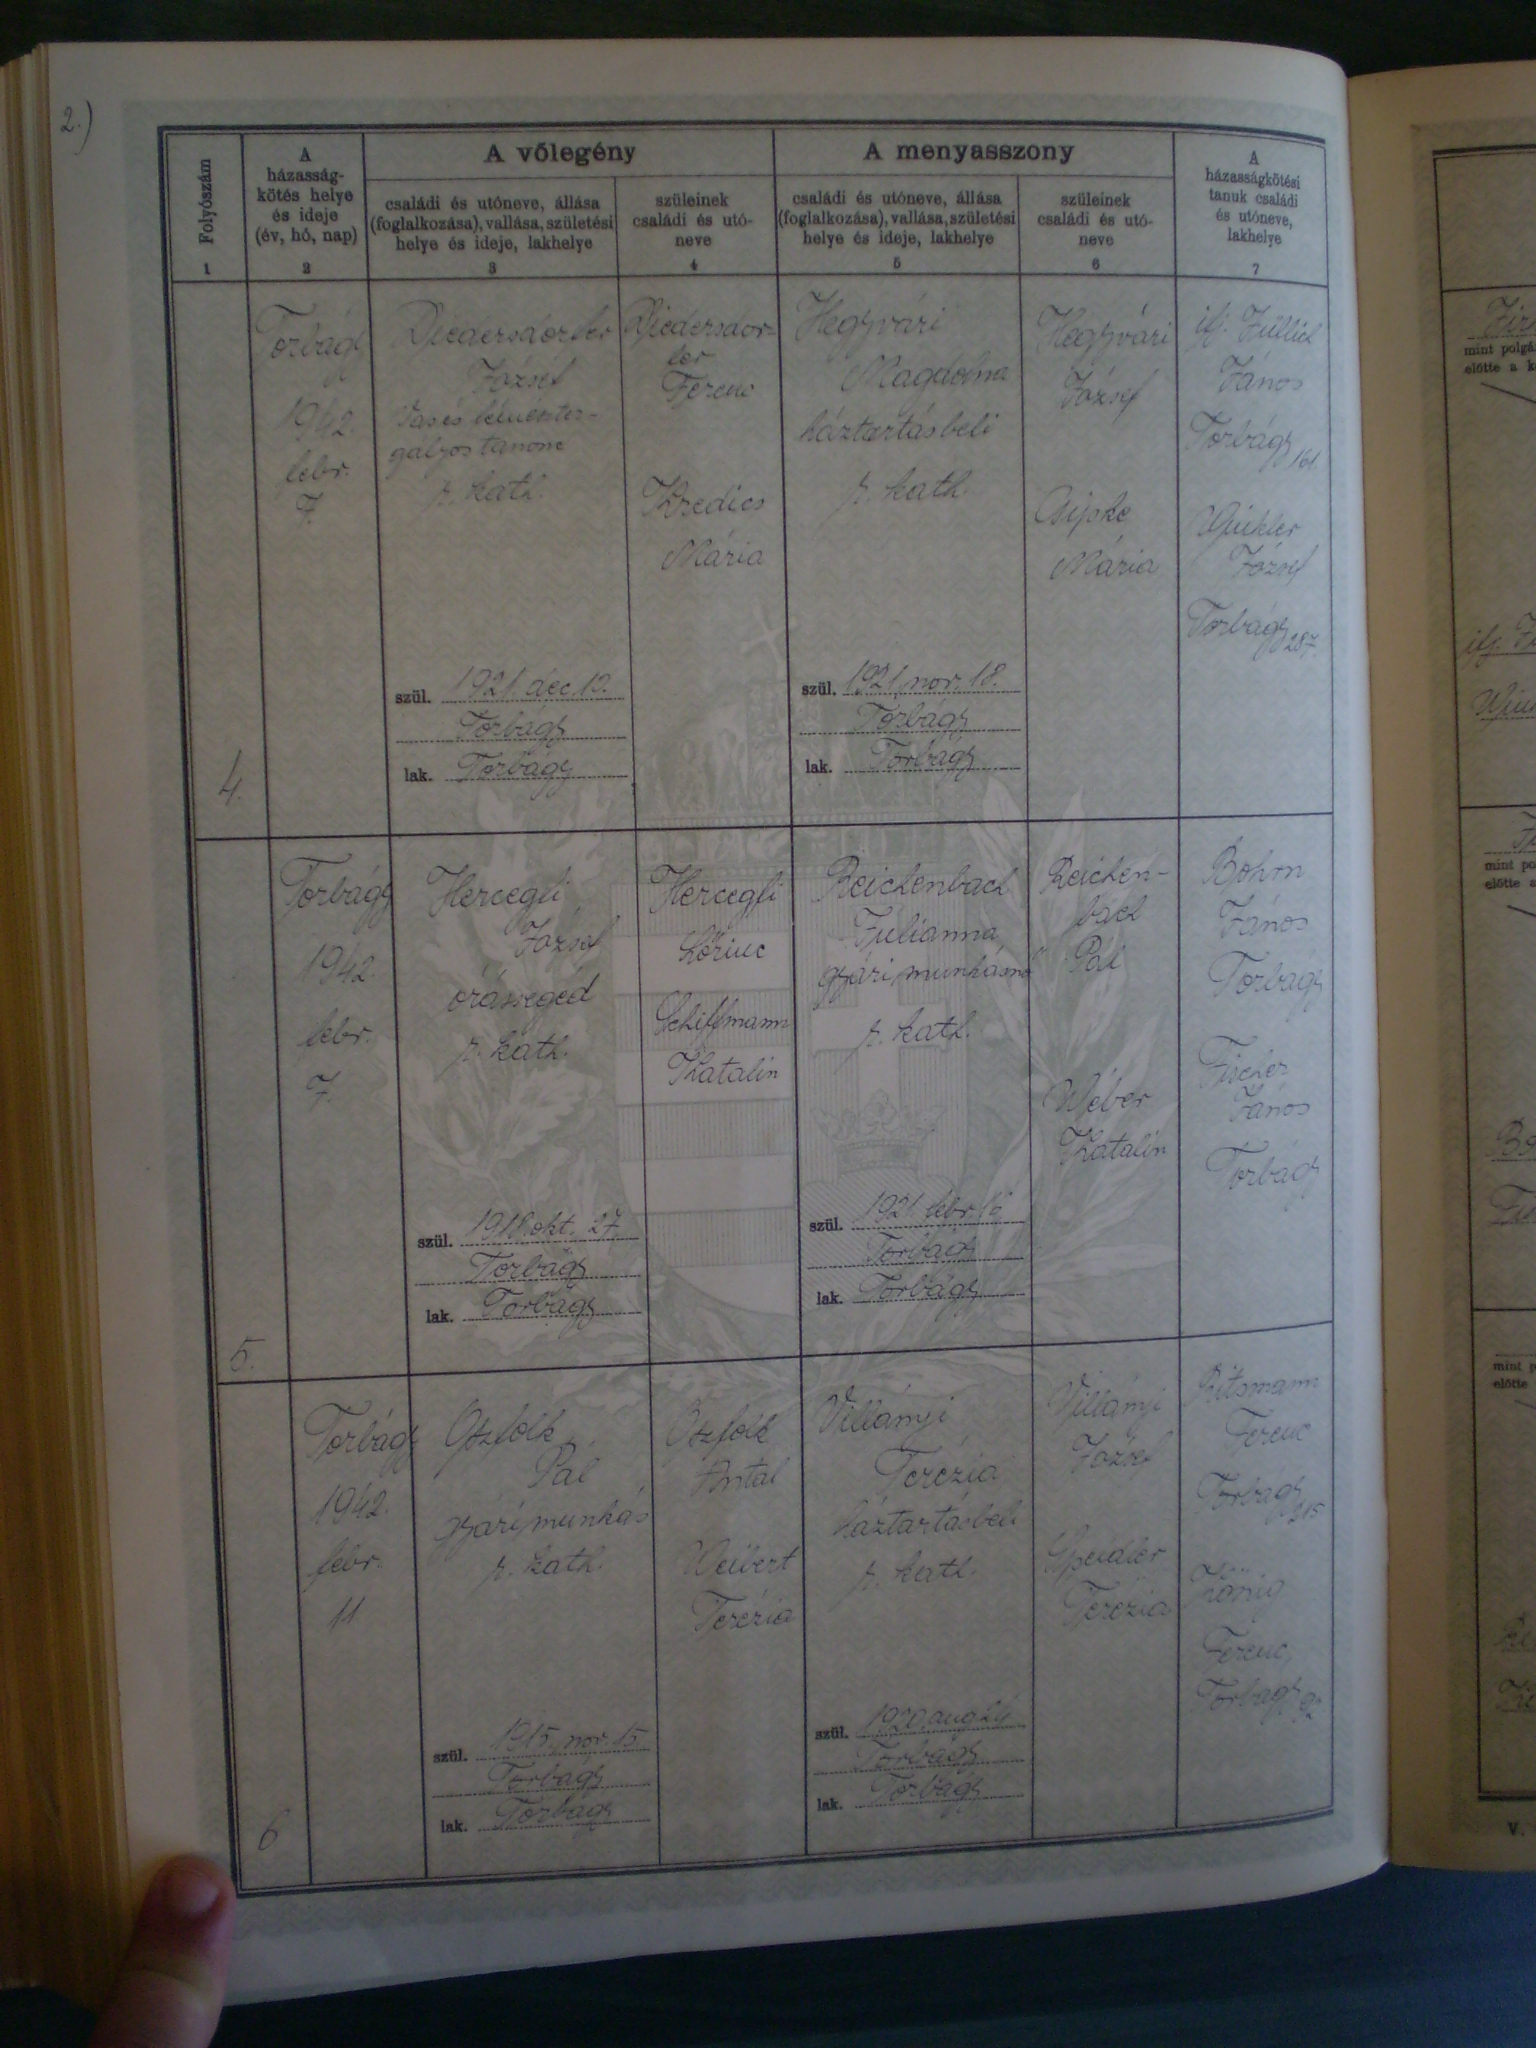 2.)
Folyószám
1
A
házasság-
kötés helye
és ideje
(év, hó, nap)
2
A vőlegény
családi és utóneve, állása
(foglalkozása), vallása, születési
helye és ideje, lakhelye
3
szüleinek
családi és utó-
neve
4
A menyasszony
családi és utóneve, állása
(foglalkozása), vallása, születési
helye és ideje, lakhelye
5
szüleinek
családi és utó-
neve
6
A
házasságkötési
tanuk családi
és utóneve,
lakhelye
7
4.
Torbágy
1942.
febr.
7.
Riedersdorfer
József
Vas és fémeszter-
gályos tanonc
r. kath.
szül. 1921. dec. 12.
Torbágy
lak. Torbágy
Riedersdor-
fer
Ferenc
Kredics
Mária
Hegyvári
Magdolna
háztartásbeli
r. kath.
szül. 1921. nov. 18.
Torbágy
lak. Torbágy
Hegyvári
József
Csipke
Mária
ifj. Züllich
János
Torbágy 161.
Winkler
József
Torbágy 287.
5.
Torbágy
1942.
febr.
7.
Hercegfi
József
órássegéd
r. kath.
szül. 1918. okt. 27
Torbágy
lak. Torbágy
Hercegfi
Lőrinc
Schiffmann
Katalin
Reichenbach
Julianna
gyári munkásnő
r. kath.
szül. 1921. febr. 16
Torbágy
lak. Torbágy
Reichen-
bach
Pál
Wéber
Katalin
Bohm
János
Torbágy
Fischer
János
Torbágy
6
Torbágy
1942.
febr.
11
Oszfolk
Pál
gyári munkás
r. kath.
szül. 1915. nov. 15.
Torbágy
lak. Torbágy
Oszfolk
Antal
Weibert
Terézia
Villányi
Terézia
háztartásbeli
r. kath.
szül. 1920. aug. 24
Torbágy
lak. Torbágy
Villányi
József
Speidler
Terézia
Ritsmann
Ferenc
Torbágy 315
König
Ferenc,
Torbágy 92
mint polgá
előtte a k
ifj. Z
mint po
előtte a
mint p
előtte
V.